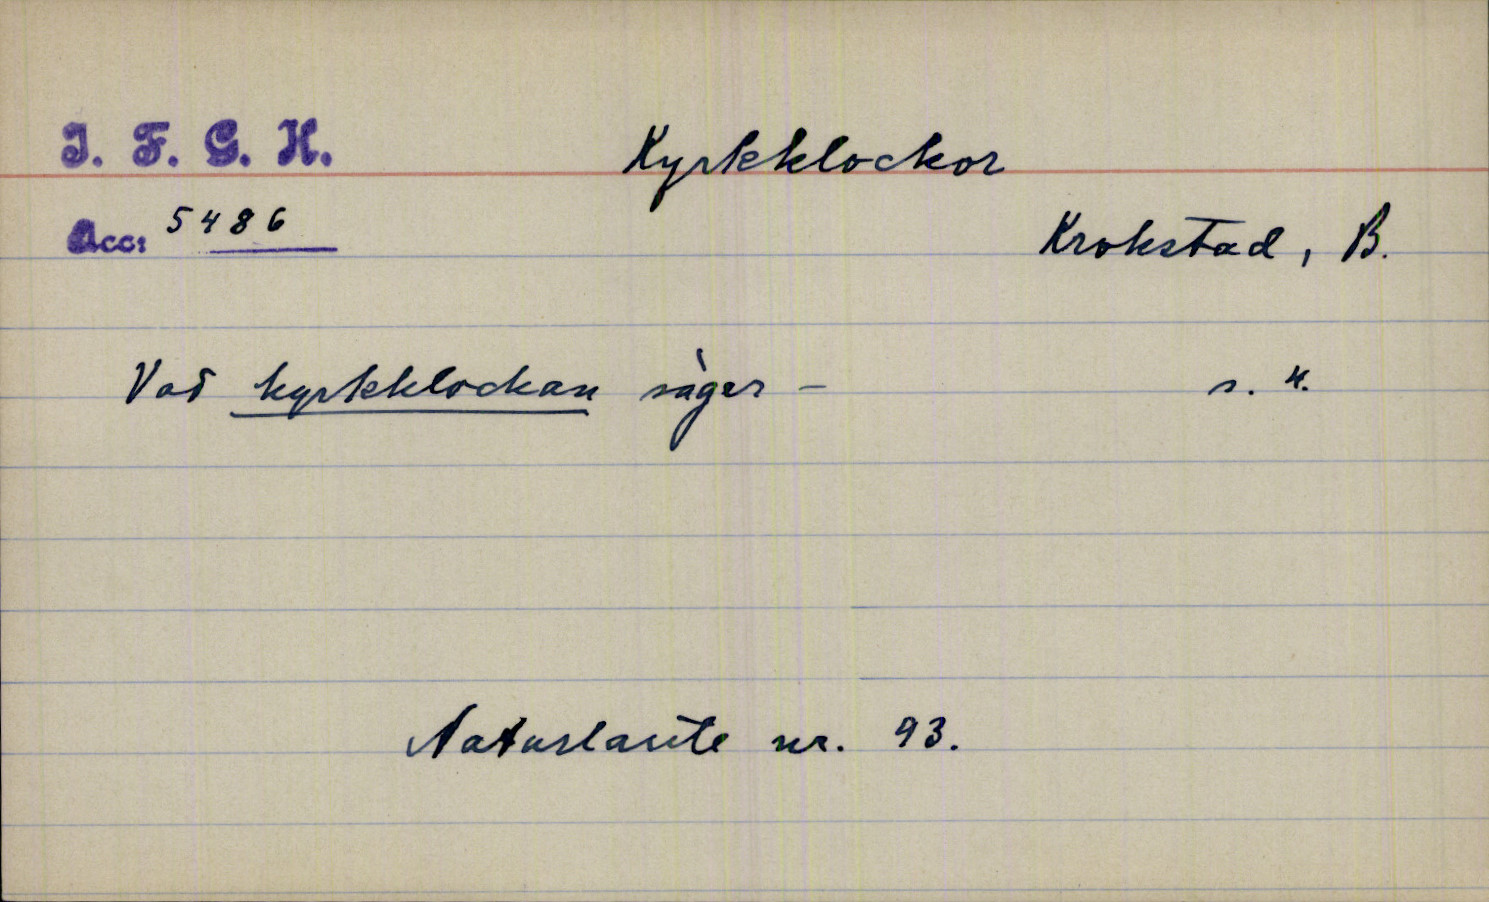 I. F. G. H. Kyrkklockor
Acc: 5486
Krokstad, B.
Vad kyrkklockan säger – s. 4.
Naturlaute nr. 93.